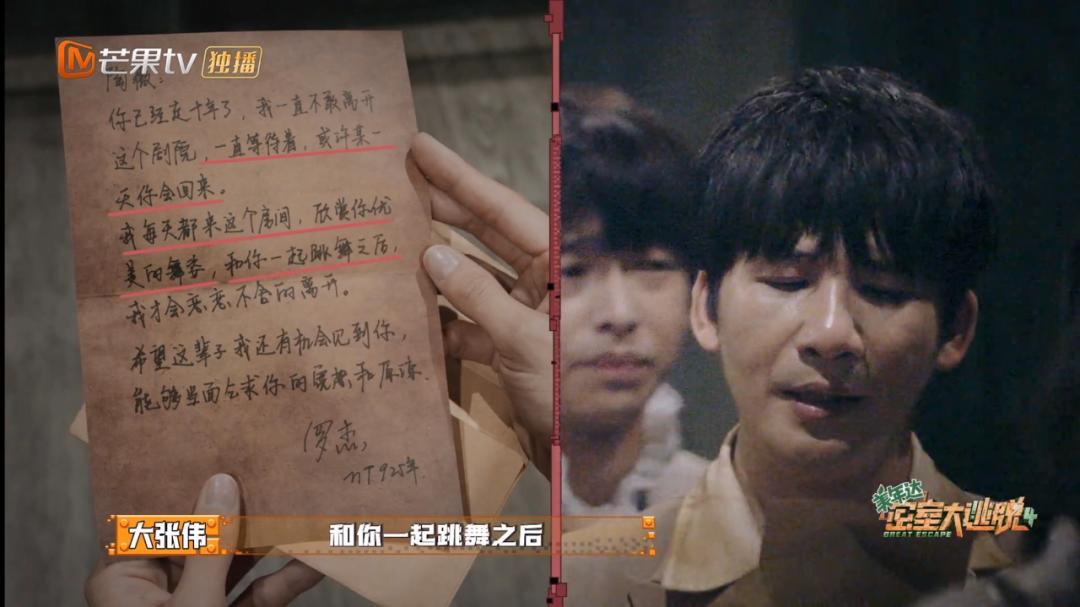 芒果tv 独播
你已经走十年了，我一直不敢离开
这个剧院，一直等待着，或许某一
天你会回来。
我每天都来这个房间，欣赏你优
美的舞姿，和你一起跳舞之后，
我才会恋恋不舍的离开。
希望这辈子我还有机会见到你，
能够当面乞求你的宽恕和原谅.
罗杰
NT925年.
大张伟 和你一起跳舞之后
美年达
密室大逃脱4
GREAT ESCAPE